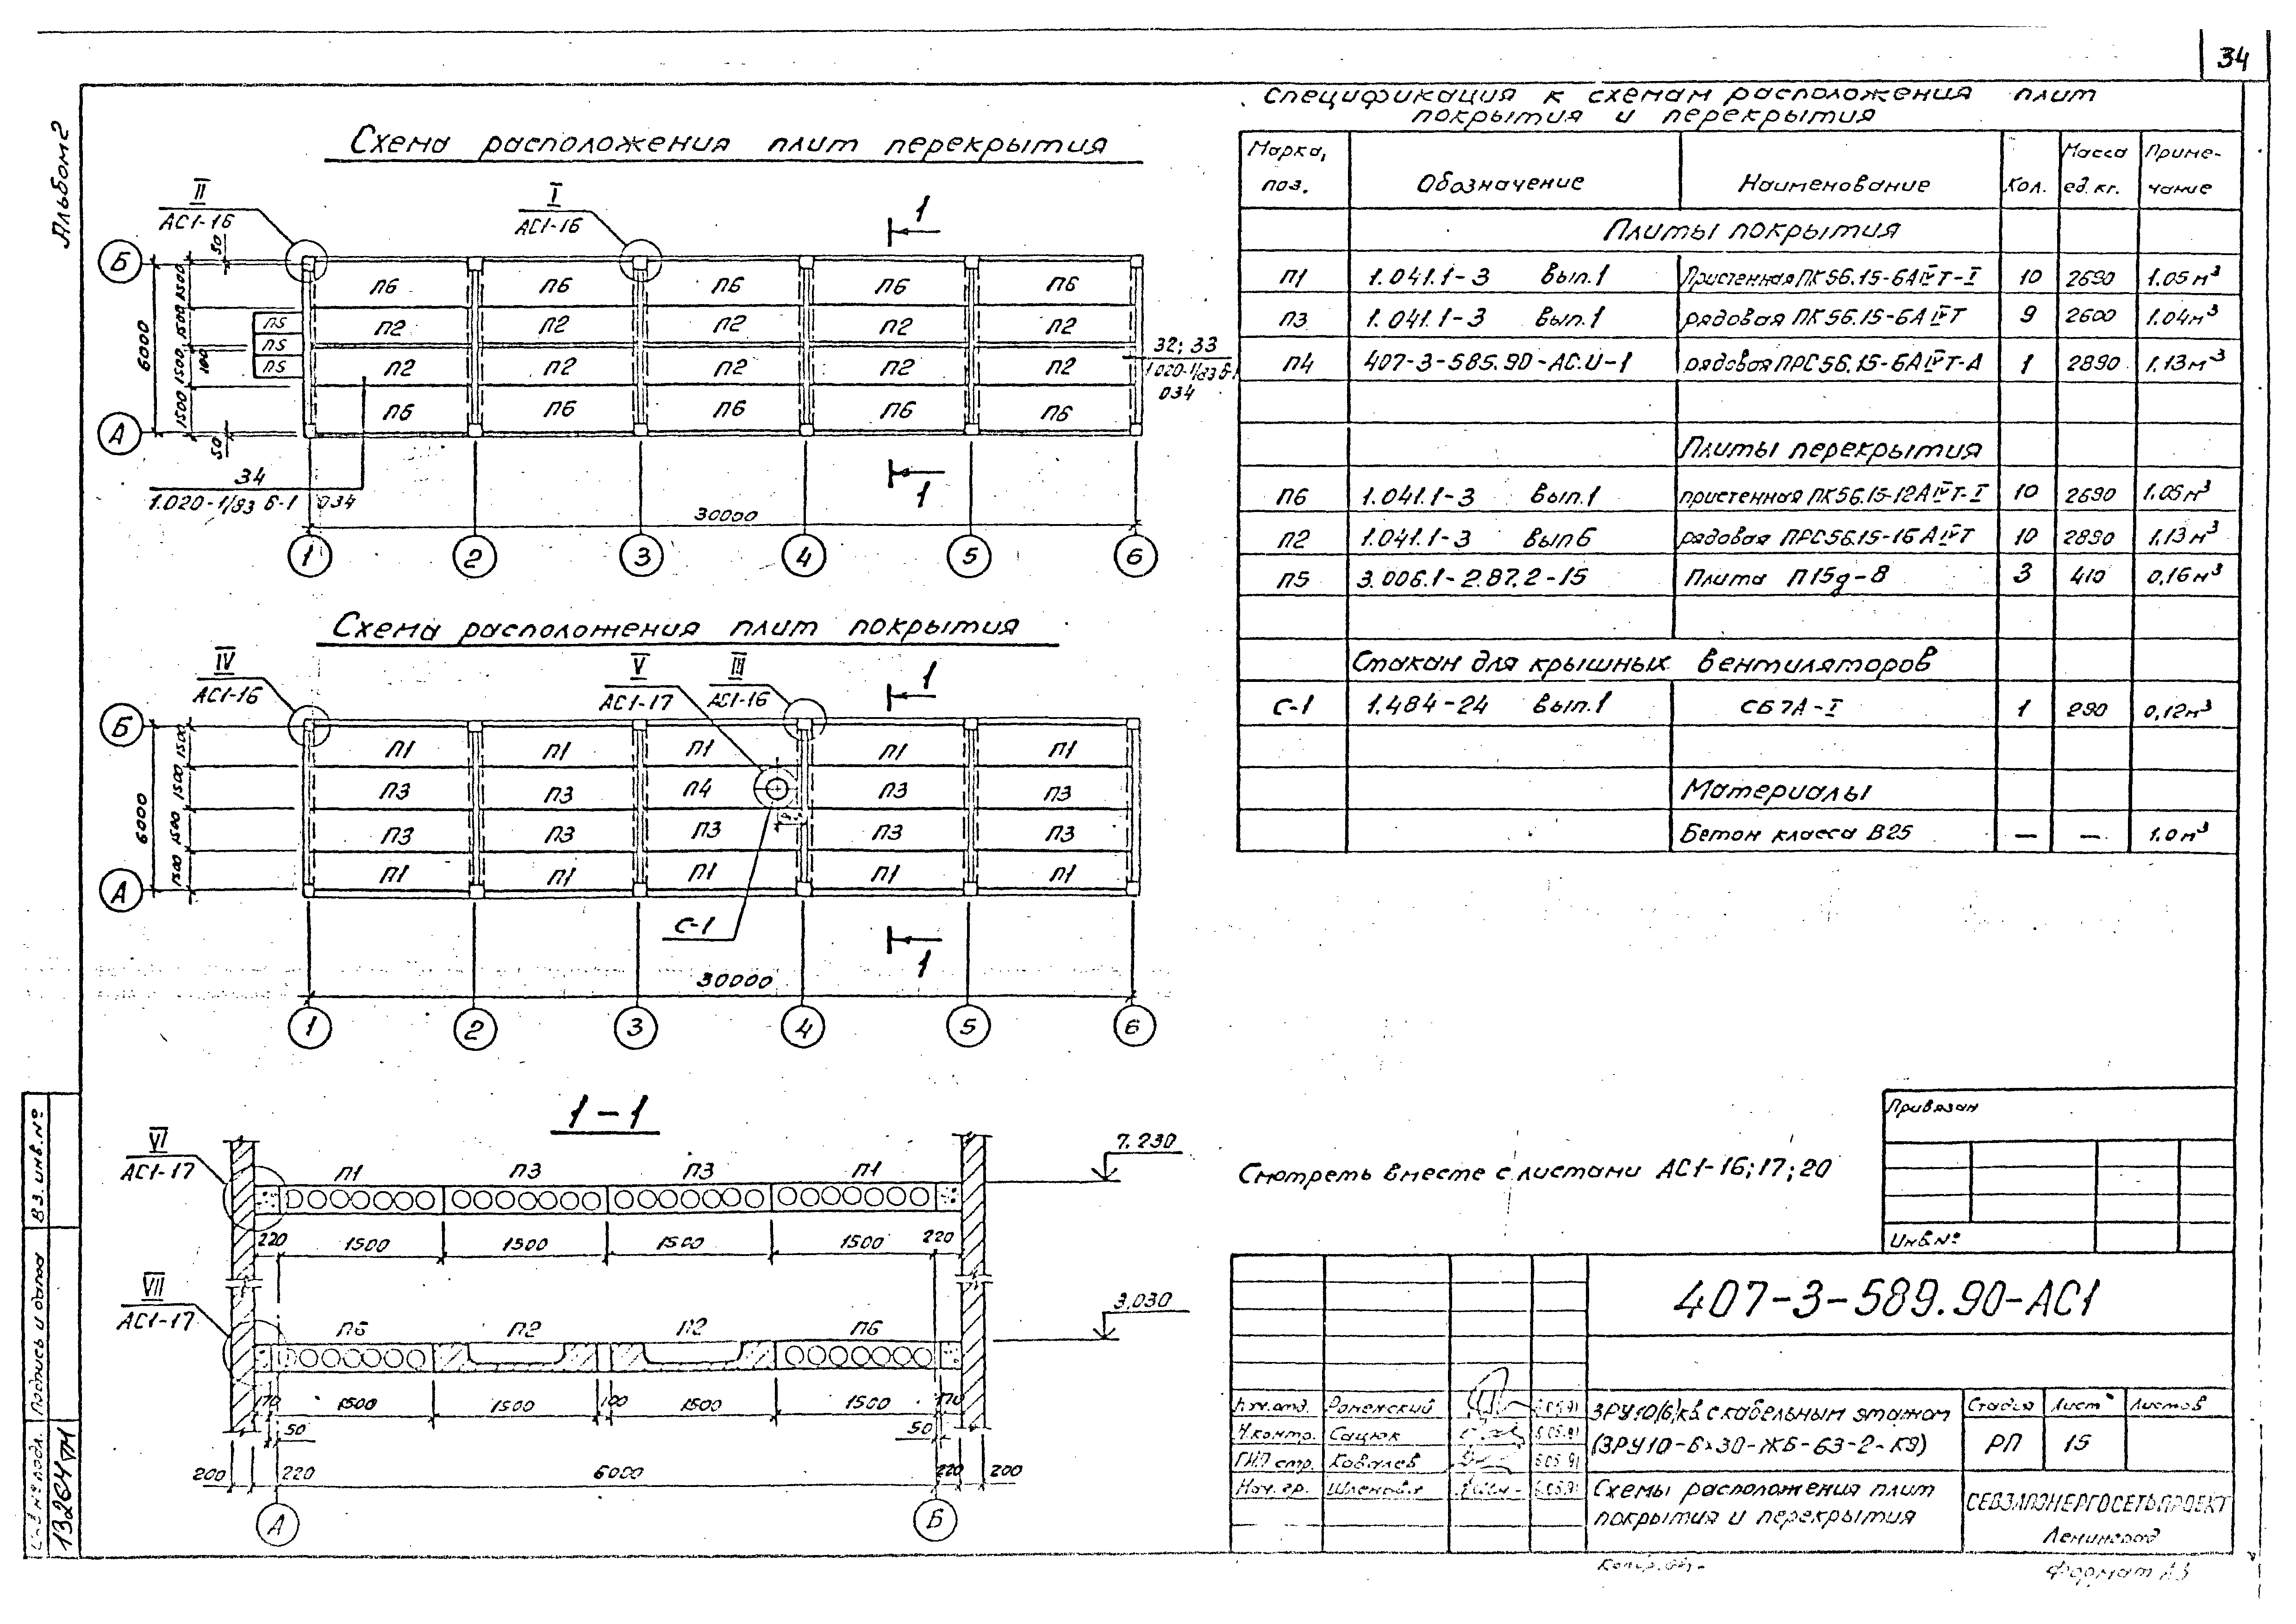 34
Альбом 2
Схема расположения плит перекрытия
II
АС1-16
I
АС1-16
1
50
Б
П6 П6 П6 П6 П6
П5 П2 П2 П2 П2 П2
П5
П5 П2 П2 П2 П2 П2
П6 П6 П6 П6 П6
А
6000
1500 1500 100 1500 1500
50
32; 33
1.020-1/83 6-1
034
34
1.020-1/83 6-1 034
1
30000
1 2 3 4 5 6
Схема расположения плит покрытия
IV
АС1-16
V
АС1-17
III
АС1-16
1
Б
П1 П1 П1 П1 П1
П3 П3 П4 П3 П3
П3 П3 П3 П3 П3
П1 П1 П1 П1 П1
А
6000
1500 1500 1500 1500
С-1
1
30000
1 2 3 4 5 6
1-1
VI
АС1-17
П1 П3 П3 П1
7.230
220 1500 1500 1500 1500 220
VII
АС1-17
П6 П2 П2 П6
3.030
170 1500 1500 100 1500 1500 170
50 50
200 220 6000 220 200
А Б
Спецификация к схемам расположения плит
покрытия и перекрытия
Марка, поз. Обозначение Наименование Кол. Масса ед. кг. Примечание
Плиты покрытия
П1 1.041.1-3 Вып.1 Пристенная ПК56.15-6АIVТ-I 10 2690 1.05 м³
П3 1.041.1-3 Вып.1 рядовая ПК56.15-6АIVТ 9 2600 1.04м³
П4 407-3-585.90-АС.И-1 рядовая ПРС56.15-6АIVТ-А 1 2890 1.13м³
Плиты перекрытия
П6 1.041.1-3 Вып.1 пристенная ПК56.15-12АIVТ-I 10 2690 1.05 м³
П2 1.041.1-3 Вып6 рядовая ПРС56.15-16АIVТ 10 2890 1,13м³
П5 3.006.1-2.87.2-15 Плита П15д-8 3 410 0,16м³
Стакан для крышных вентиляторов
С-1 1.484-24 Вып.1 СБ7А-I 1 290 0,12м³
Материалы
Бетон класса В25 — — 1.0м³
Смотреть вместе с листами АС1-16;17;20
Привязан
Инв.№
407-3-589.90-АС1
Нач.отд. Роменский
Н.контр. Сацюк
ГИП стр. Ковалев
Нач. гр.
ЗРУ10(6)кВ с кабельным этажом
(ЗРУ10-6×30-ЖБ-63-2-КЭ)
Стадия Лист Листов
РП 15
Схемы расположения плит
покрытия и перекрытия
СЕВЗАПЭНЕРГОСЕТЬПРОЕКТ
Ленинград
Формат А3
Вз. инв. №
Подпись и дата
Инв № подл.
13264тм